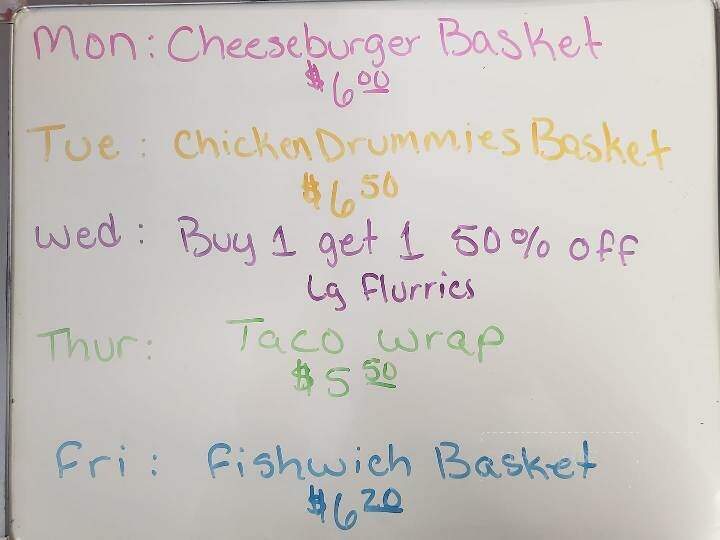 Mon: Cheeseburger Basket
$6 00
Tue: Chicken Drummies Basket
$6 50
Wed: Buy 1 get 1 50% off
Lg Flurries
Thur: Taco wrap
$5 50
Fri: Fishwich Basket
$6 20